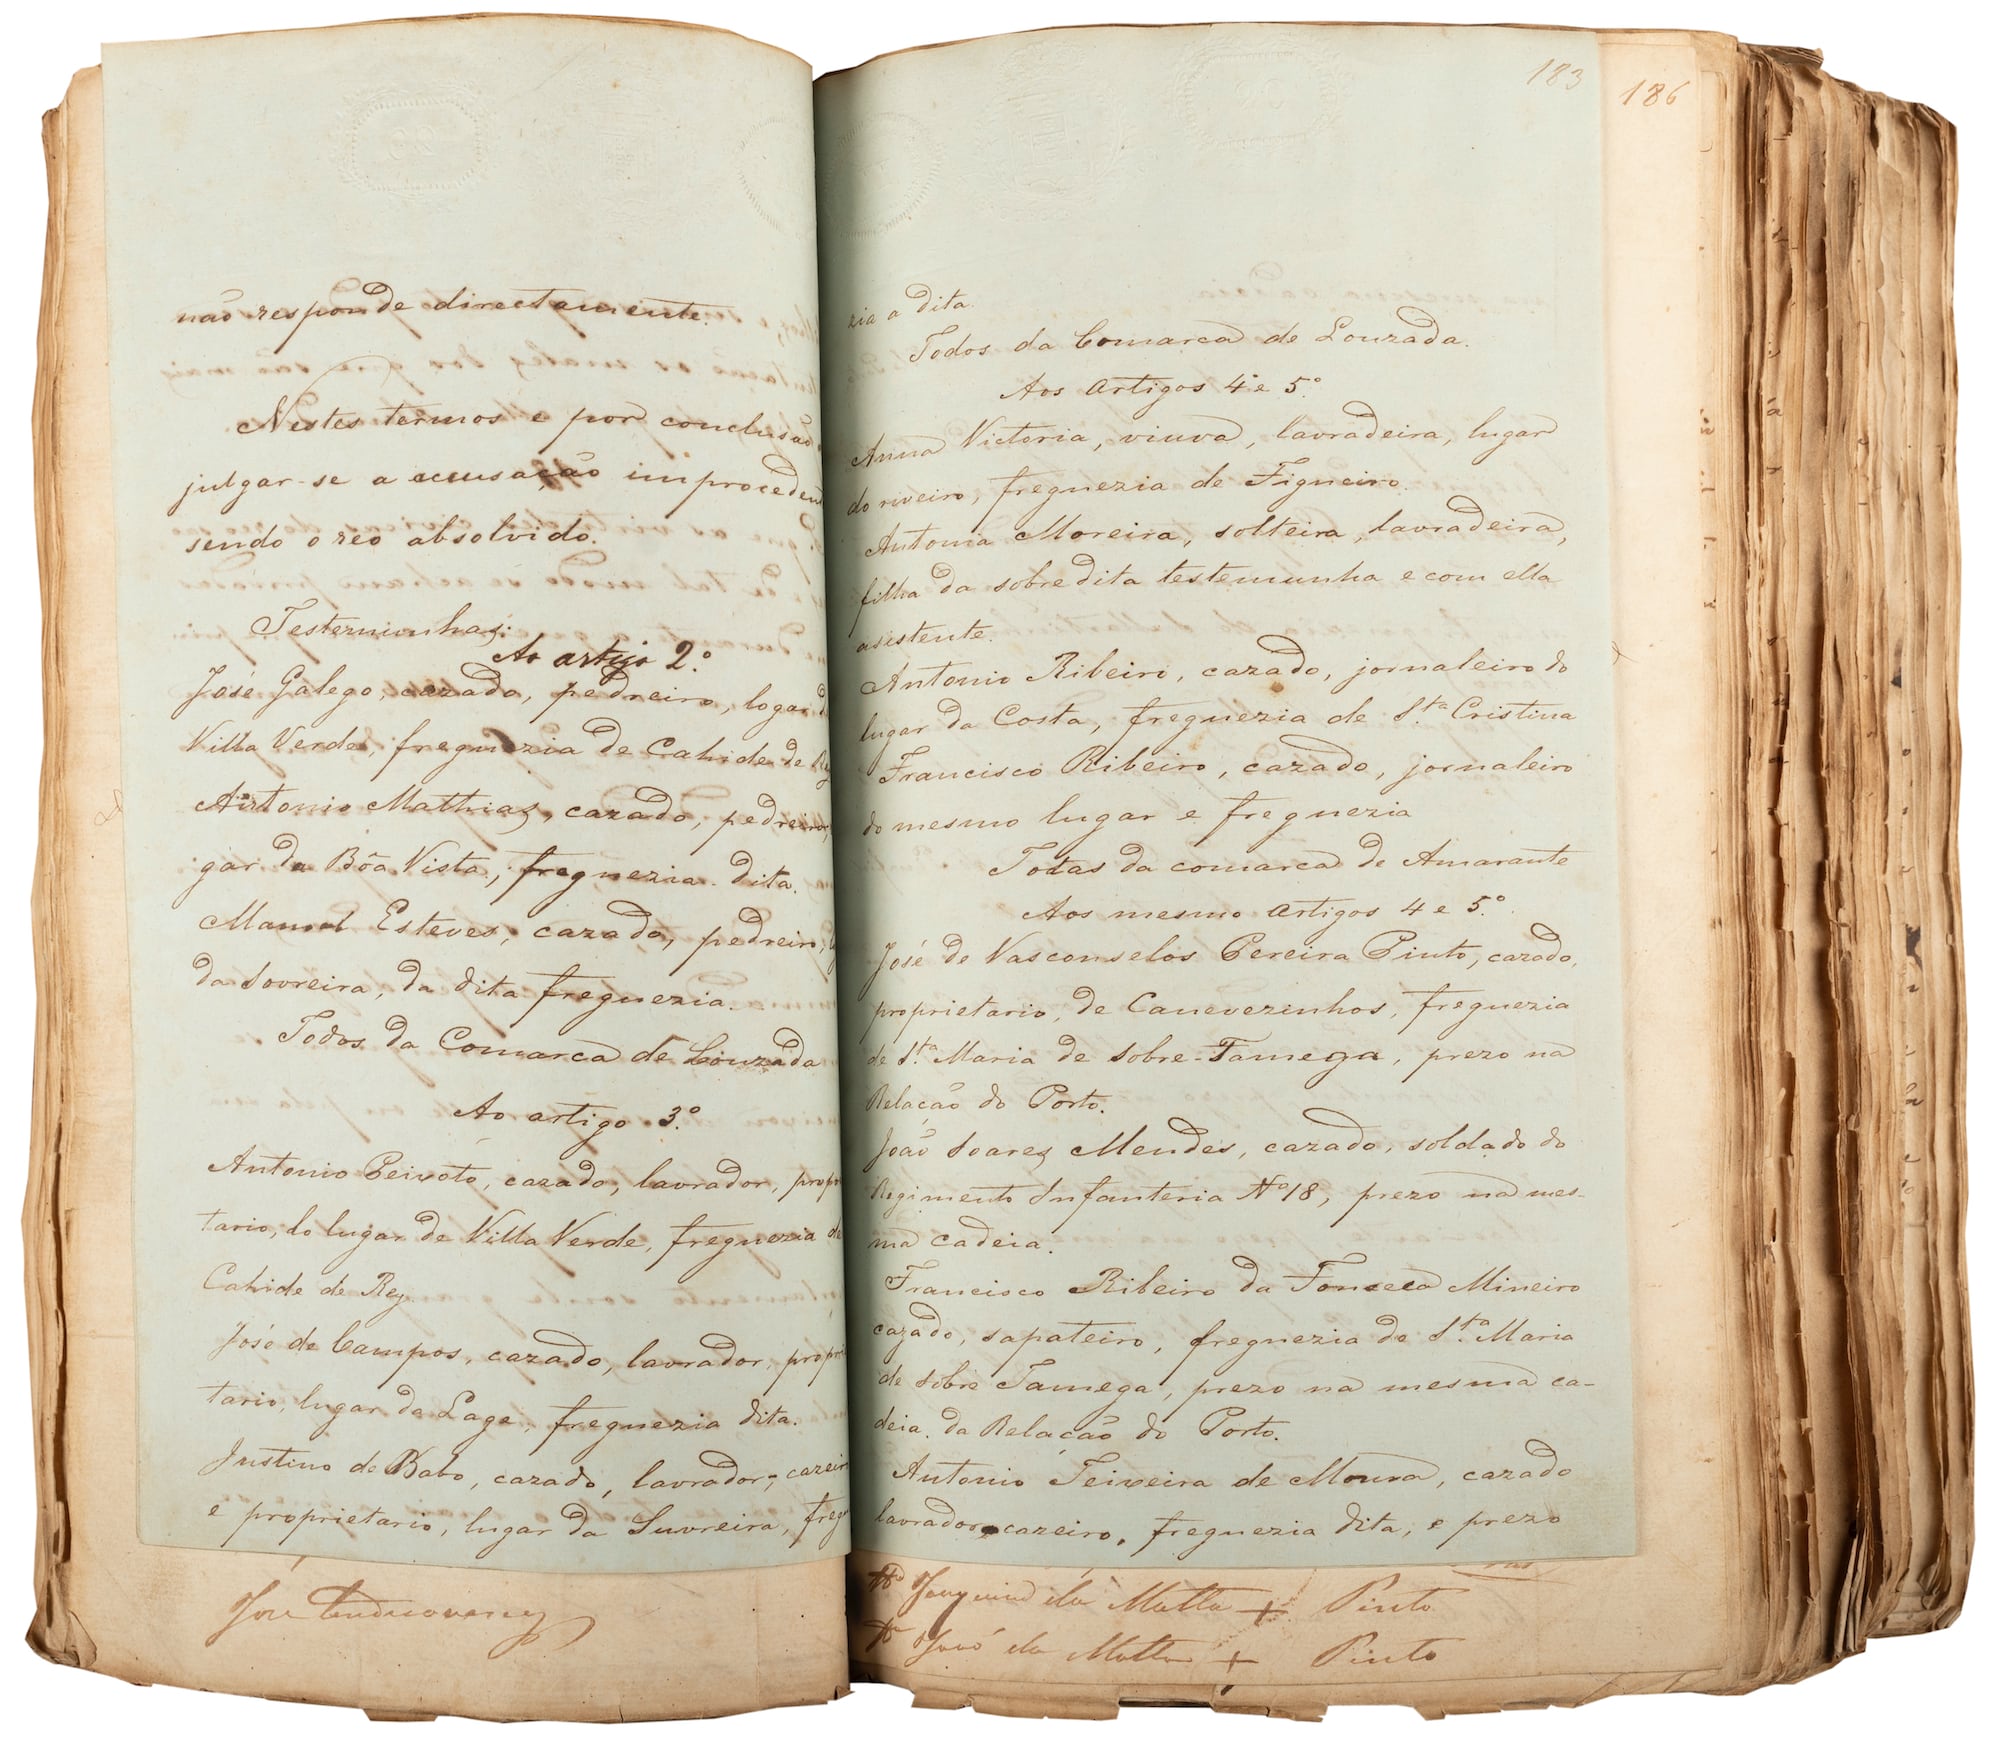 não responde directamente.
Nestes termos e por conclusão
julgar-se a accusação improcedent
sendo o reo absolvido.
Testemunhas:
Ao artigo 2.º
José Galego, cazado, pedreiro, logar d
Villa Verde, freguezia de Cahide de Rey
Antonio Mathias, cazado, pedreiro,
gar da Bôa Vista, freguezia dita.
Manoel Esteves, cazado, pedreiro, l
da Sovreira, da dita freguezia.
Todos da Comarca de Louzada
Ao artigo 3.º
Antonio Peixoto, cazado, lavrador, propri
tario, do lugar de Villa Verde, freguezia de
Cahide de Rey.
José de Campos, cazado, lavrador, propri
tario, lugar da Lage, freguezia dita.
Justino de Babo, cazado, lavrador, cazeir
e proprietario, lugar da Suvreira, freg
José
183
186
zia a dita.
Todos da Comarca de Louzada.
Aos artigos 4 e 5.º
Anna Victoria, viuva, lavradeira, lugar
do riveiro, freguezia de Figueiro.
Antonia Moreira, solteira, lavradeira,
filha da sobredita testemunha e com ella
asistente.
Antonio Ribeiro, cazado, jornaleiro do
lugar da Costa, freguezia de S.ta Cristina
Francisco Ribeiro, cazado, jornaleiro
do mesmo lugar e freguezia
Todas da comarca de Amarante
Aos mesmo artigos 4 e 5.º
José de Vasconselos Pereira Pinto, cazado,
proprietario, de Canevezinhos, freguezia
de S.ta Maria de Sobre-Tamega, prezo na
Relação do Porto.
João Soares Mendes, cazado, soldado do
Regimento Infanteria Nº 18, prezo na mes-
ma cadeia.
Francisco Ribeiro da Fonseca Mineiro
cazado, sapateiro, freguezia de S.ta Maria
de sobre Tamega, prezo na mesma ca-
deia da Relação do Porto.
Antonio Teixeira de Moura, cazado
lavrador e cazeiro, freguezia dita, e prezo
Joaquim da Motta + Pinto
José da Motta + Pinto